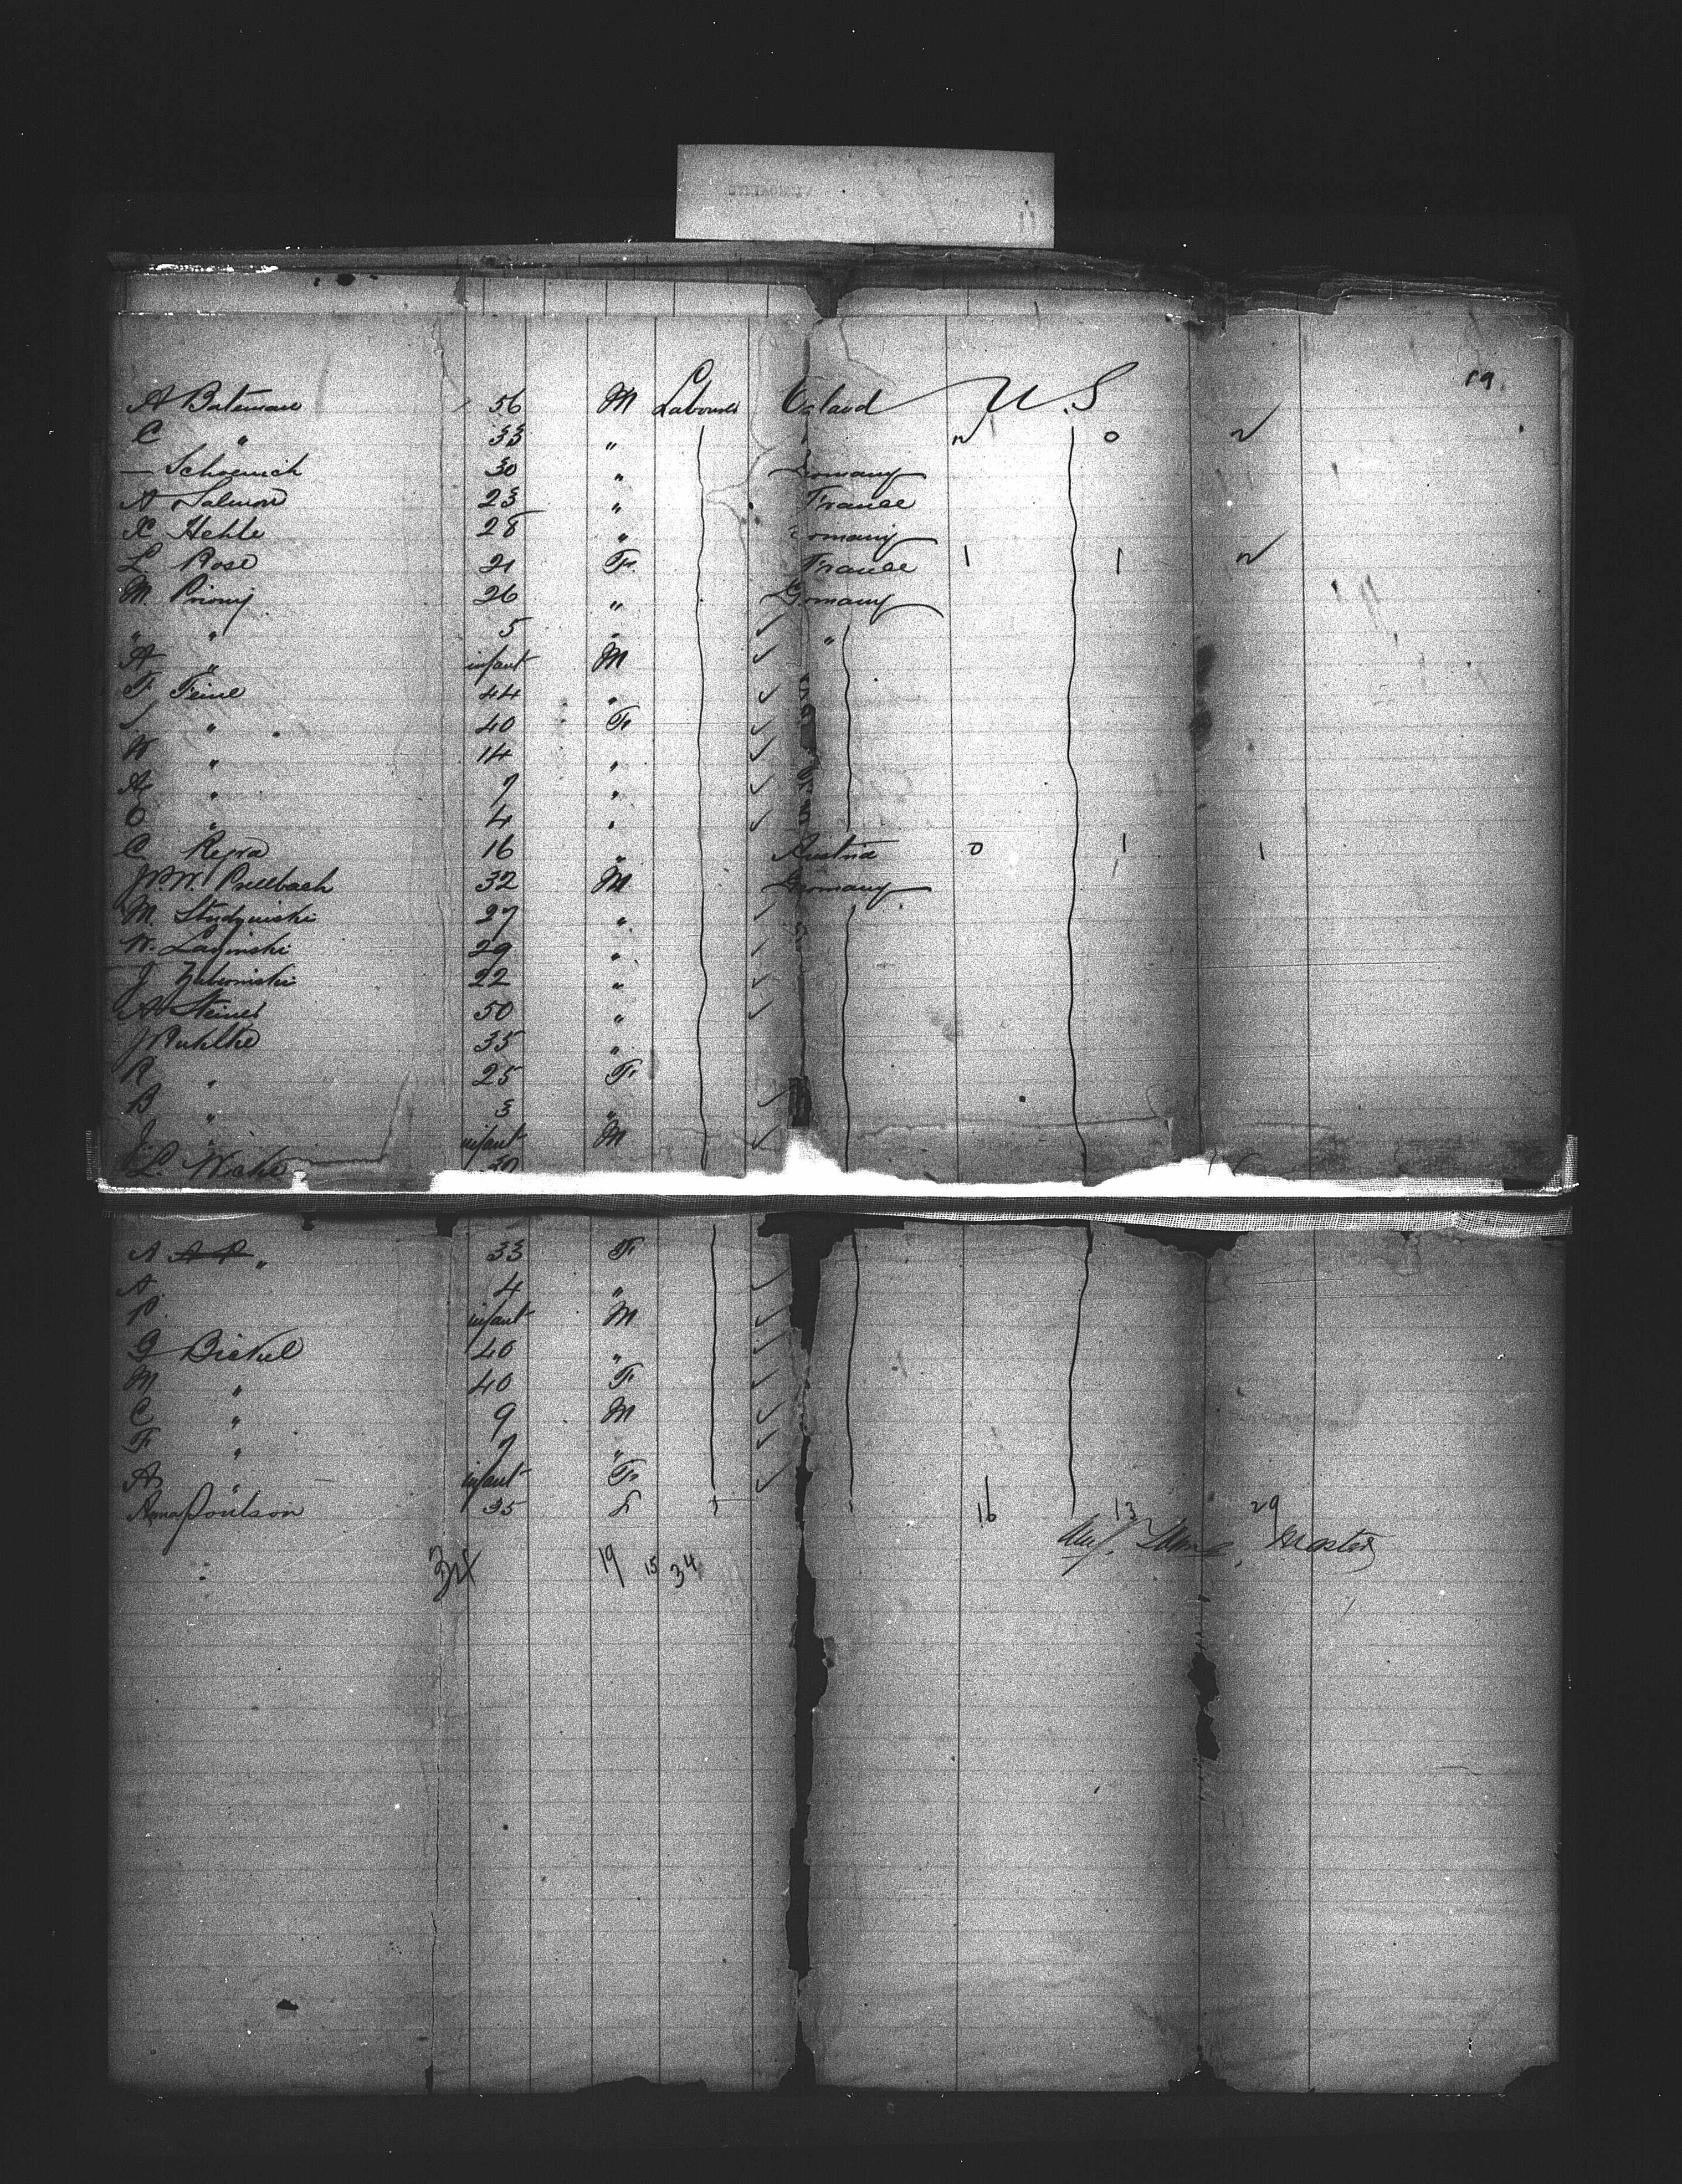 19
A Bateman 56 M Labourer England U.S
C " 33 " 2 0 2
— Schoenich 30 " Germany
A Salmon 23 " France
X Hehle 28 " Germany
L Rose 21 F. France 1 1 2
M. Priomij 26 " Germany
" " 5 " "
A " infant M
F Feine 44 "
" 40 F
W " 14 "
A " 7 "
O " 4 "
C Repra 16 " Austria 0 1 1
J.P.W. Prellbach 32 M Germany
M. Studzinski 27 "
W. Lazinski 29 "
J 22 "
A Steiner 50 "
J Ruhlke 35 "
R " 25 F.
B " 3 "
J. " infant M
L. Wiche 30
A A P " 33 F
A. 4 "
P. infant M
G Bickel 40 "
M " 40 F.
C " 9 M
F " 7 "
A " infant F.
Anna Poulson 35 F 16 13 29
Master
34 19 15 34